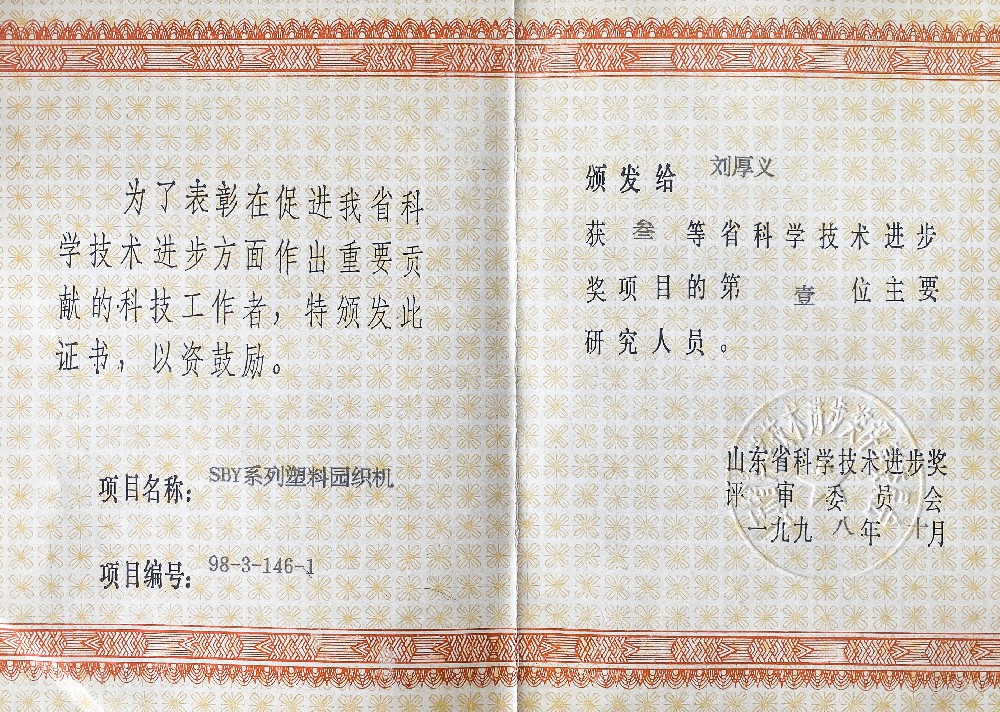 为了表彰在促进我省科
学技术进步方面作出重要贡
献的科技工作者，特颁发此
证书，以资鼓励。
项目名称：SBY系列塑料园织机
项目编号：98-3-146-1
颁发给 刘厚义
获 叁 等省科学技术进步
奖项目的第 壹 位主要
研究人员。
山东省科学技术进步奖
评审委员会
一九九八年十月